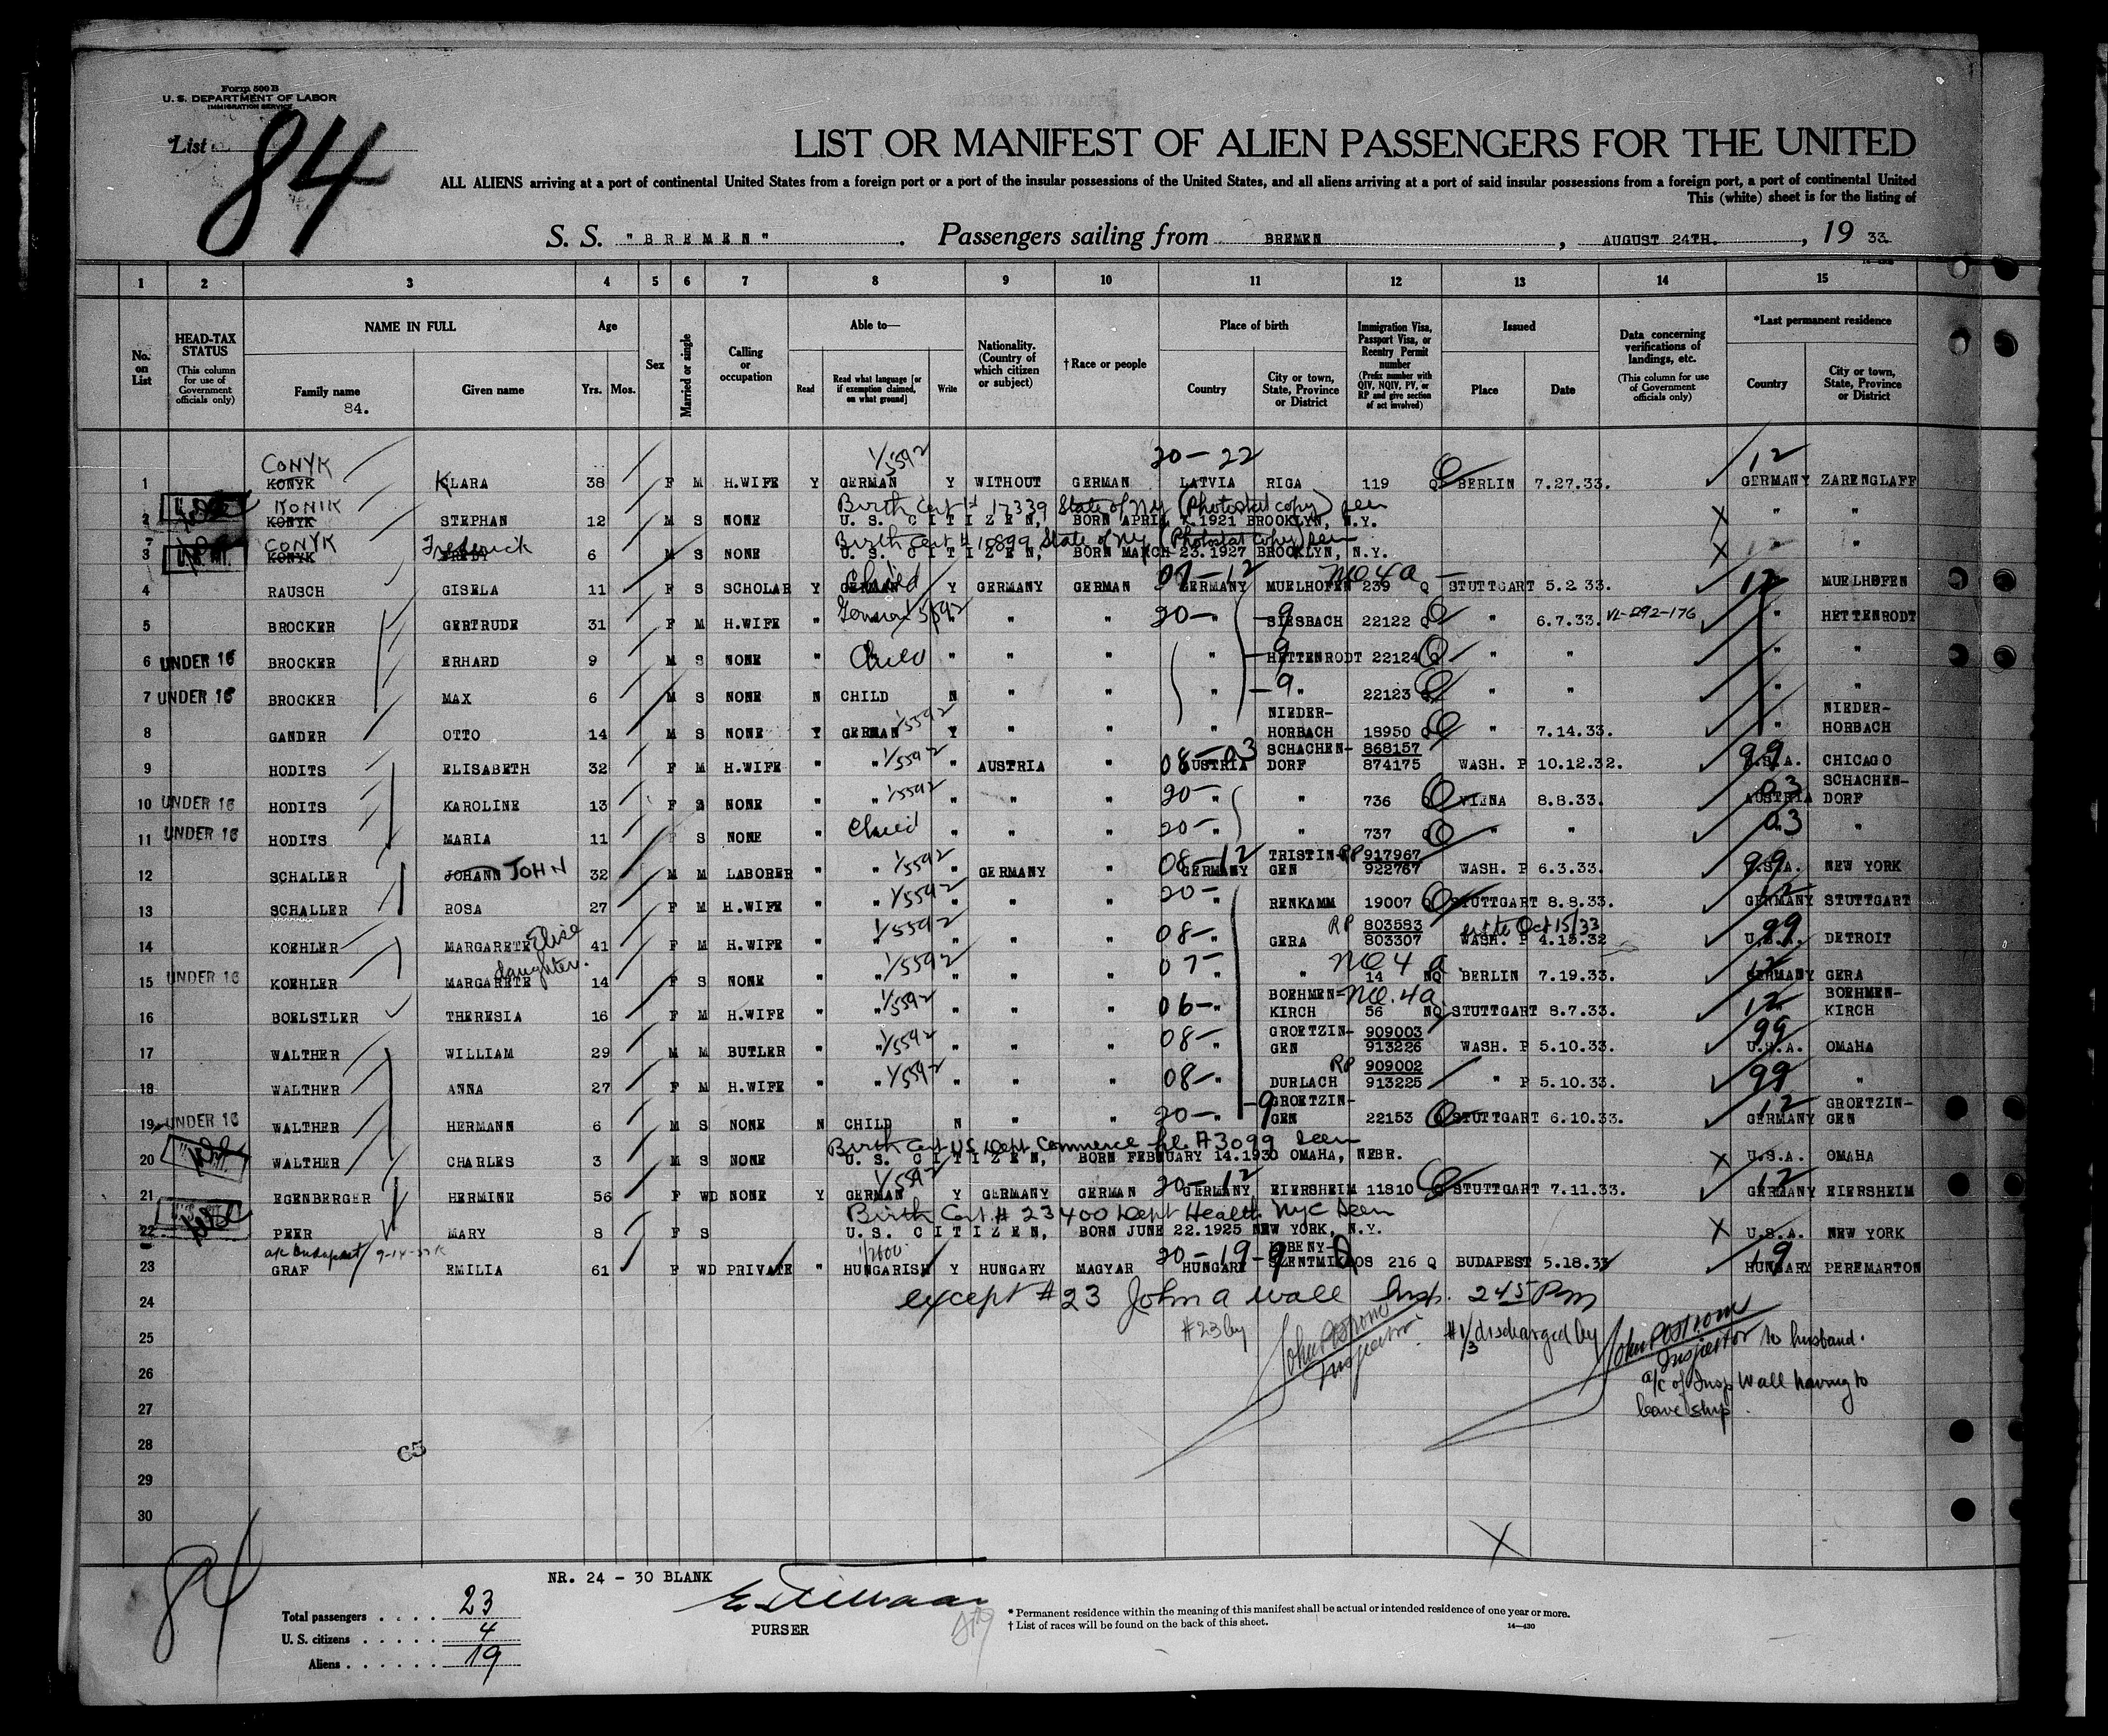 Form 500 B
U. S. DEPARTMENT OF LABOR
IMMIGRATION SERVICE
List 84
LIST OR MANIFEST OF ALIEN PASSENGERS FOR THE UNITED
ALL ALIENS arriving at a port of continental United States from a foreign port or a port of the insular possessions of the United States, and all aliens arriving at a port of said insular possessions from a foreign port, a port of continental United
This (white) sheet is for the listing of
S. S. "BREMEN". Passengers sailing from BREMEN, AUGUST 24TH., 19 33.
1 2 3 4 5 6 7 8 9 10 11 12 13 14 15
No. on List
HEAD-TAX STATUS (This column for use of Government officials only)
NAME IN FULL
Family name 84.
Given name
Age
Yrs. Mos.
Sex
Married or single
Calling or occupation
Able to—
Read
Read what language [or if exemption claimed, on what ground]
Write
Nationality. (Country of which citizen or subject)
† Race or people
Place of birth
Country
City or town, State, Province or District
Immigration Visa, Passport Visa, or Reentry Permit number (Prefix number with QIV, NQIV, PV, or RP and give section of act involved)
Issued
Place
Date
Data concerning verifications of landings, etc. (This column for use of Government officials only)
*Last permanent residence
Country
City or town, State, Province or District
CONYK 1/5592 20-22 12
1 KONYK KLARA 38 F M H.WIFE Y GERMAN Y WITHOUT GERMAN LATVIA RIGA 119 Q BERLIN 7.27.33. GERMANY ZARENGLAFF
KONIK Birth Cert # 17339 State of NY (Photostat copy) seen
2 KONYK STEPHAN 12 M S NONE U. S. CITIZEN, BORN APRIL 7.1921 BROOKLYN, N.Y. " "
CONYK Frederick Birth Cert # 10899 State of NY (Photostat copy) seen
3 KONYK FREDY 6 M S NONE U. S. CITIZEN, BORN MARCH 23.1927 BROOKLYN, N.Y. " "
Child 07-12 NQ 4a 12
4 RAUSCH GISELA 11 F S SCHOLAR Y GERMAN Y GERMANY GERMAN GERMANY MUELHOFEN 239 Q STUTTGART 5.2.33. MUELHOFEN
German 1/5592 20- 9 VL-292-176
5 BROCKER GERTRUDE 31 F M H.WIFE " " " " " SIESBACH 22122 Q " 6.7.33. " HETTENRODT
6 UNDER 16 BROCKER ERHARD 9 M S NONE " Child " " " " 9 HETTENRODT 22124 Q " " " "
7 UNDER 16 BROCKER MAX 6 M S NONE N CHILD N " " " 9 " 22123 Q " " " "
1/5592 NIEDER- NIEDER-
8 GANDER OTTO 14 M S NONE Y GERMAN Y " " " HORBACH 18950 Q " 7.14.33. " HORBACH
1/5592 08-03 SCHACHEN- 868157 99
9 HODITS ELISABETH 32 F M H.WIFE " " " AUSTRIA " AUSTRIA DORF 874175 WASH. P 10.12.32. U.S.A. CHICAGO
1/5592 20- 03 SCHACHEN-
10 UNDER 16 HODITS KAROLINE 13 F S NONE " " " " " " " 736 Q VIENA 8.8.33. AUSTRIA DORF
11 UNDER 16 HODITS MARIA 11 F S NONE " Child " " " 20- " " 737 Q " " 03 "
1/5592 08-12 TRISTIN- RP 917967 99
12 SCHALLER JOHANN JOHN 32 M M LABORER " " " GERMANY " GERMANY GEN 922767 WASH. P 6.3.33. U.S.A. NEW YORK
1/5592 20- 12
13 SCHALLER ROSA 27 F M H.WIFE " " " " " " RENKAMM 19007 Q STUTTGART 8.8.33. GERMANY STUTTGART
Elise 1/5592 08- RP 803583 Oct 15/33 99
14 KOEHLER MARGARETE 41 F M H.WIFE " " " " " " GERA 803307 WASH. P 4.15.32 U.S.A. DETROIT
daughter. 1/5592 07- NQ 4 a 12
15 UNDER 16 KOEHLER MARGARETE 14 F S NONE " " " " " " " 14 NQ BERLIN 7.19.33. GERMANY GERA
1/5592 06- BOEHMEN- NQ. 4a 12 BOEHMEN-
16 BOELSTLER THERESIA 16 F M H.WIFE " " " " " " KIRCH 56 NQ STUTTGART 8.7.33. KIRCH
1/5592 08- GROETZIN- 909003 99
17 WALTHER WILLIAM 29 M M BUTLER " " " " " " GEN 913226 WASH. P 5.10.33. U.S.A. OMAHA
1/5592 08- RP 909002 99
18 WALTHER ANNA 27 F M H.WIFE " " " " " " DURLACH 913225 " P 5.10.33. "
20- 9 GROETZIN- 12 GROETZIN-
19 UNDER 16 WALTHER HERMANN 6 M S NONE N CHILD N " " " GEN 22153 Q STUTTGART 6.10.33. GERMANY GEN
Birth Cert US Dept Commerce file # 3099 seen
20 WALTHER CHARLES 3 M S NONE U. S. CITIZEN, BORN FEBRUARY 14.1930 OMAHA, NEBR. U.S.A. OMAHA
20-12 12
21 EGENBERGER HERMINE 56 F WD NONE Y GERMAN Y GERMANY GERMAN GERMANY EIERSHEIM 11810 Q STUTTGART 7.11.33. GERMANY EIERSHEIM
Birth Cert # 23400 Dept Health NYC Seen
22 PEER MARY 8 F S U. S. CITIZEN, BORN JUNE 22.1925 NEW YORK, N.Y. U.S.A. NEW YORK
a/c Budapest 20-19-9 19
23 GRAF EMILIA 61 F WD PRIVATE " HUNGARISH Y HUNGARY MAGYAR HUNGARY SZENTMIKLOS 216 Q BUDAPEST 5.18.33 HUNGARY PEREMARTON
24 except #23 John A Wall Insp. 2 45 Pm
25 #23 by John Postrom Inspector #1/3 discharged by John Postrom Inspector to husband.
26 a/c of Insp Wall having to
27 leave ship
28 C5
29
30
84
NR. 24 - 30 BLANK
PURSER
Total passengers . . . . 23
U. S. citizens . . . . . 4
Aliens . . . . . . 19
* Permanent residence within the meaning of this manifest shall be actual or intended residence of one year or more.
† List of races will be found on the back of this sheet.
14—430